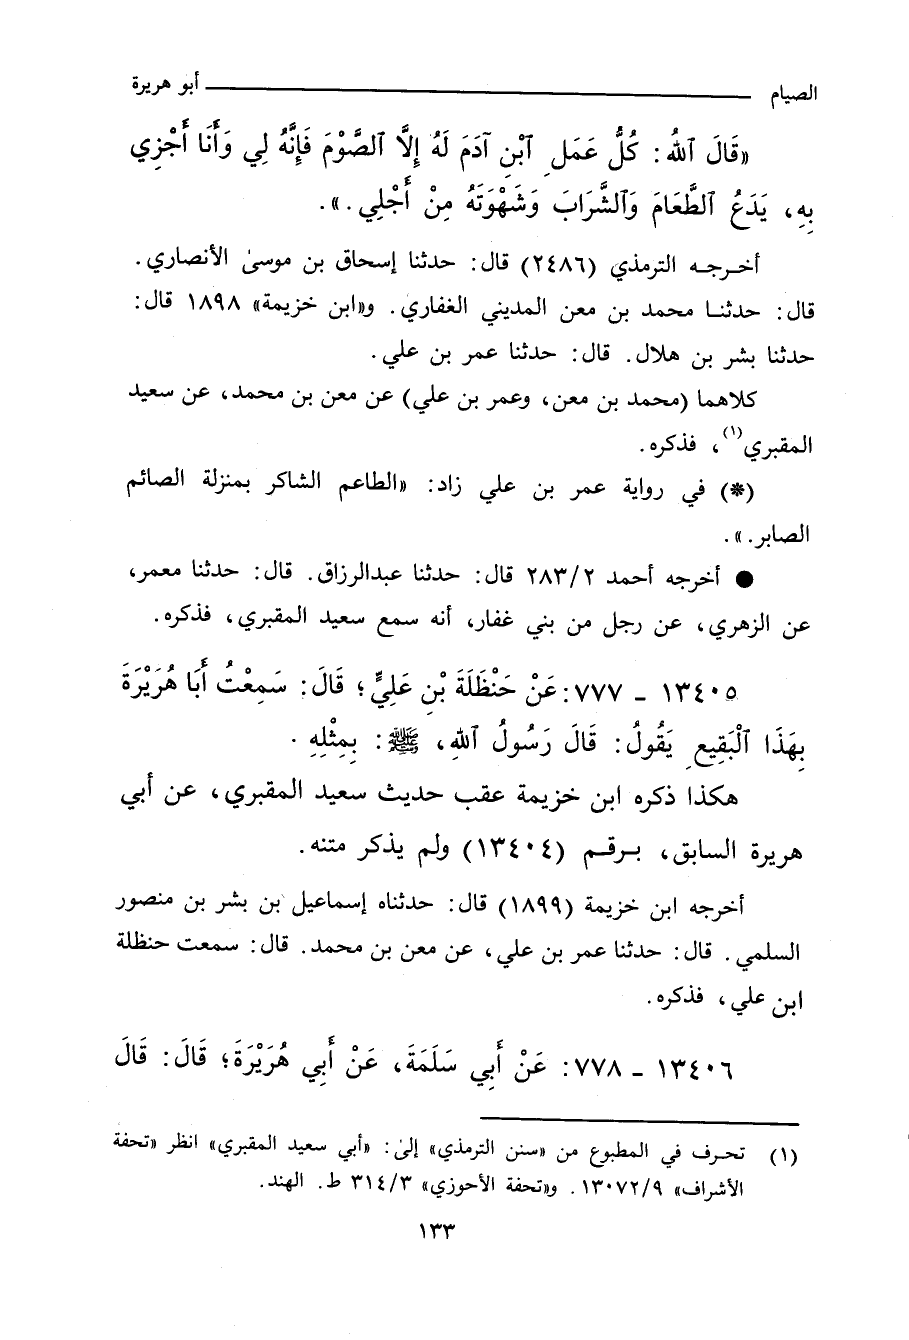 الصيام ــــــــــــ أبو هريرة
«قَالَ ٱللهُ: كُلُّ عَمَلِ ٱبْنِ آدَمَ لَهُ إِلَّا ٱلصَّوْمَ فَإِنَّهُ لِي وَأَنَا أَجْزِي
بِهِ، يَدَعُ ٱلطَّعَامَ وَٱلشَّرَابَ وَشَهْوَتَهُ مِنْ أَجْلِي.».
أخرجه الترمذي (٢٤٨٦) قال: حدثنا إسحاق بن موسىٰ الأنصاري.
قال: حدثنا محمد بن معن المديني الغفاري. و«ابن خزيمة» ١٨٩٨ قال:
حدثنا بشر بن هلال. قال: حدثنا عمر بن علي.
كلاهما (محمد بن معن، وعمر بن علي) عن معن بن محمد، عن سعيد
المقبري(١)، فذكره.
(*) في رواية عمر بن علي زاد: «الطاعم الشاكر بمنزلة الصائم
الصابر.».
● أخرجه أحمد ٢/٢٨٣ قال: حدثنا عبدالرزاق. قال: حدثنا معمر،
عن الزهري، عن رجل من بني غفار، أنه سمع سعيد المقبري، فذكره.
١٣٤٠٥ ـ ٧٧٧: عَنْ حَنْظَلَةَ بْنِ عَلِيٍّ؛ قَالَ: سَمِعْتُ أَبَا هُرَيْرَةَ
بِهَذَا ٱلْبَقِيعِ يَقُولُ: قَالَ رَسُولُ ٱللهِ، ﷺ: بِمِثْلِهِ.
هكذا ذكره ابن خزيمة عقب حديث سعيد المقبري، عن أبي
هريرة السابق، برقم (١٣٤٠٤) ولم يذكر متنه.
أخرجه ابن خزيمة (١٨٩٩) قال: حدثناه إسماعيل بن بشر بن منصور
السلمي. قال: حدثنا عمر بن علي، عن معن بن محمد. قال: سمعت حنظلة
ابن علي، فذكره.
١٣٤٠٦ ـ ٧٧٨: عَنْ أَبِي سَلَمَةَ، عَنْ أَبِي هُرَيْرَةَ؛ قَالَ: قَالَ
(١) تحرف في المطبوع من «سنن الترمذي» إلىٰ: «أبي سعيد المقبري» انظر «تحفة
الأشراف» ٩/١٣٠٧٢. و«تحفة الأحوزي» ٣/٣١٤ ط. الهند.
١٣٣